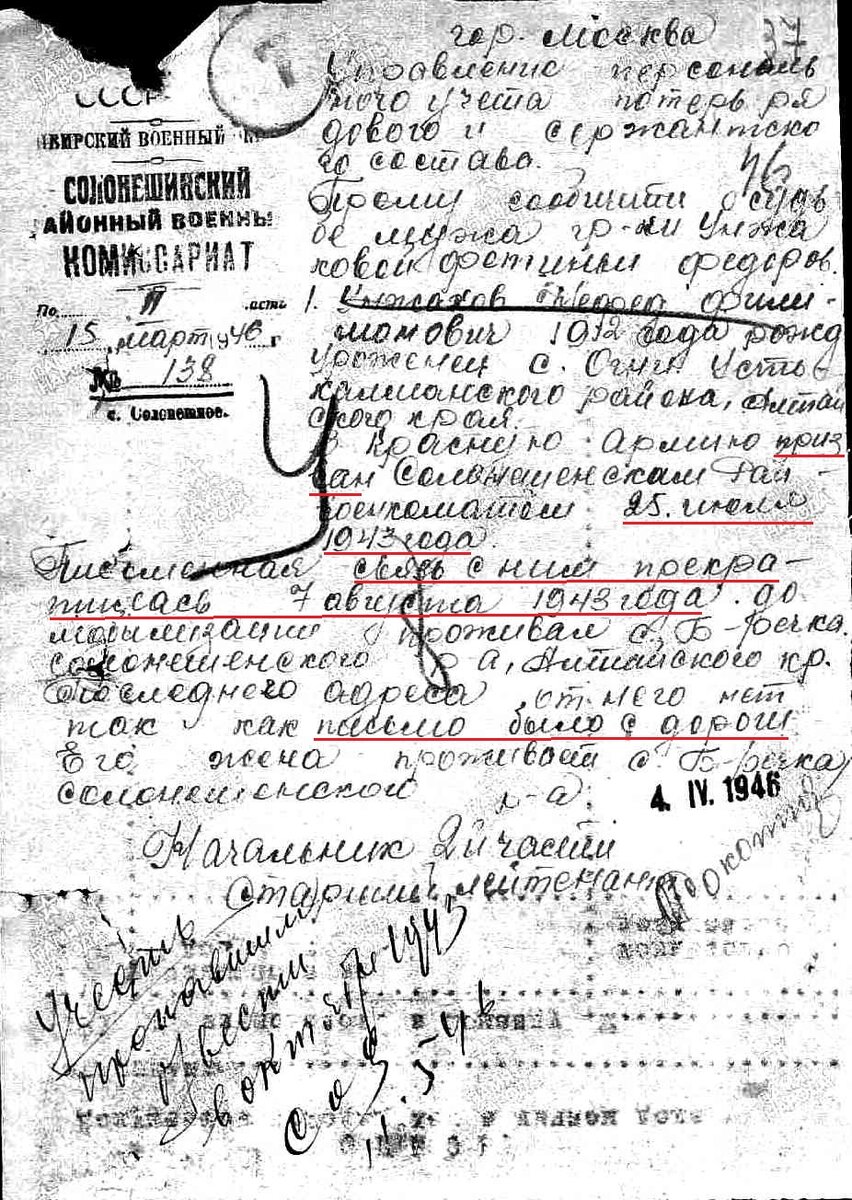 гор. Москва
37
Управление персональ
ного учета потерь ря
дового и сержантско
го состава.
СССР
СОЛОНЕШИНСКИЙ
РАЙОННЫЙ ВОЕННЫ
КОМИССАРИАТ
По II часть
15 март 1946 г
№ 138
с. Солонешное.
Прошу сообщить о судь
бе мужа гр-ки Унжа
ковой Фетиньи Федоров.
1. Унжаков Федор Фили-
монович 1912 года рожд
уроженец с. Огни Усть
калманского района, Алтай
ского края.
В Красную армию приз
ван Солонешенскам Рай-
военкоматом 25. июля
1943 года.
Писменная связь с ним прекра-
тилась 7 августа 1943 года. до
мобилизации проживал с. Б-Речка.
солонешенского р-а, Алтайского кр.
Последнего адреса от него нет
так как письмо было с дороги
Его жена проживает с. Б-речка,
солонешенского р-а
4. IV. 1946
Начальник 2й части
Старший лейтенант
Учесть
пропавшим
без вести
в октябре 1943
11.5 46